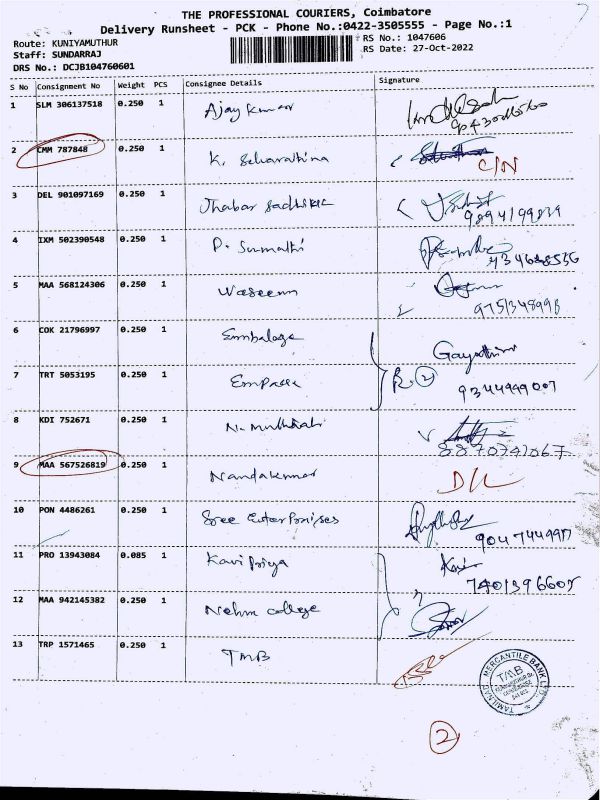 THE PROFESSIONAL COURIERS, Coimbatore
Delivery Runsheet - PCK - Phone No.:0422-3505555 - Page No.:1
Route: KUNIYAMUTHUR
RS No.: 1047606
Staff: SUNDARRAJ
RS Date: 27-Oct-2022
DRS No.: DCJB104760601
S No Consignment No Weight PCS Consignee Details Signature
1 SLM 306137518 0.250 1 Ajay Kumar
2 CMM 787848 0.250 1 K. C/N
3 DEL 901097169 0.250 1 Jhabar 9894199839
4 IXM 502390548 0.250 1 P. Sumathi
5 MAA 568124306 0.250 1 Waseem 9751348998
6 COK 21796997 0.250 1 Embalage
7 TRT 5053195 0.250 1 2 9344999007
8 KDI 752671 0.250 1 N. 8870741067
9 MAA 567526819 0.250 1 Nandakumar D/L
10 PON 4486261 0.250 1 Sree Enterprises 9047744997
11 PRO 13943084 0.085 1 Kavi Priya 7401396605
12 MAA 942145382 0.250 1 Nehru College
13 TRP 1571465 0.250 1 TMB
TAMILNAD MERCANTILE BANK LTD
TMB
2